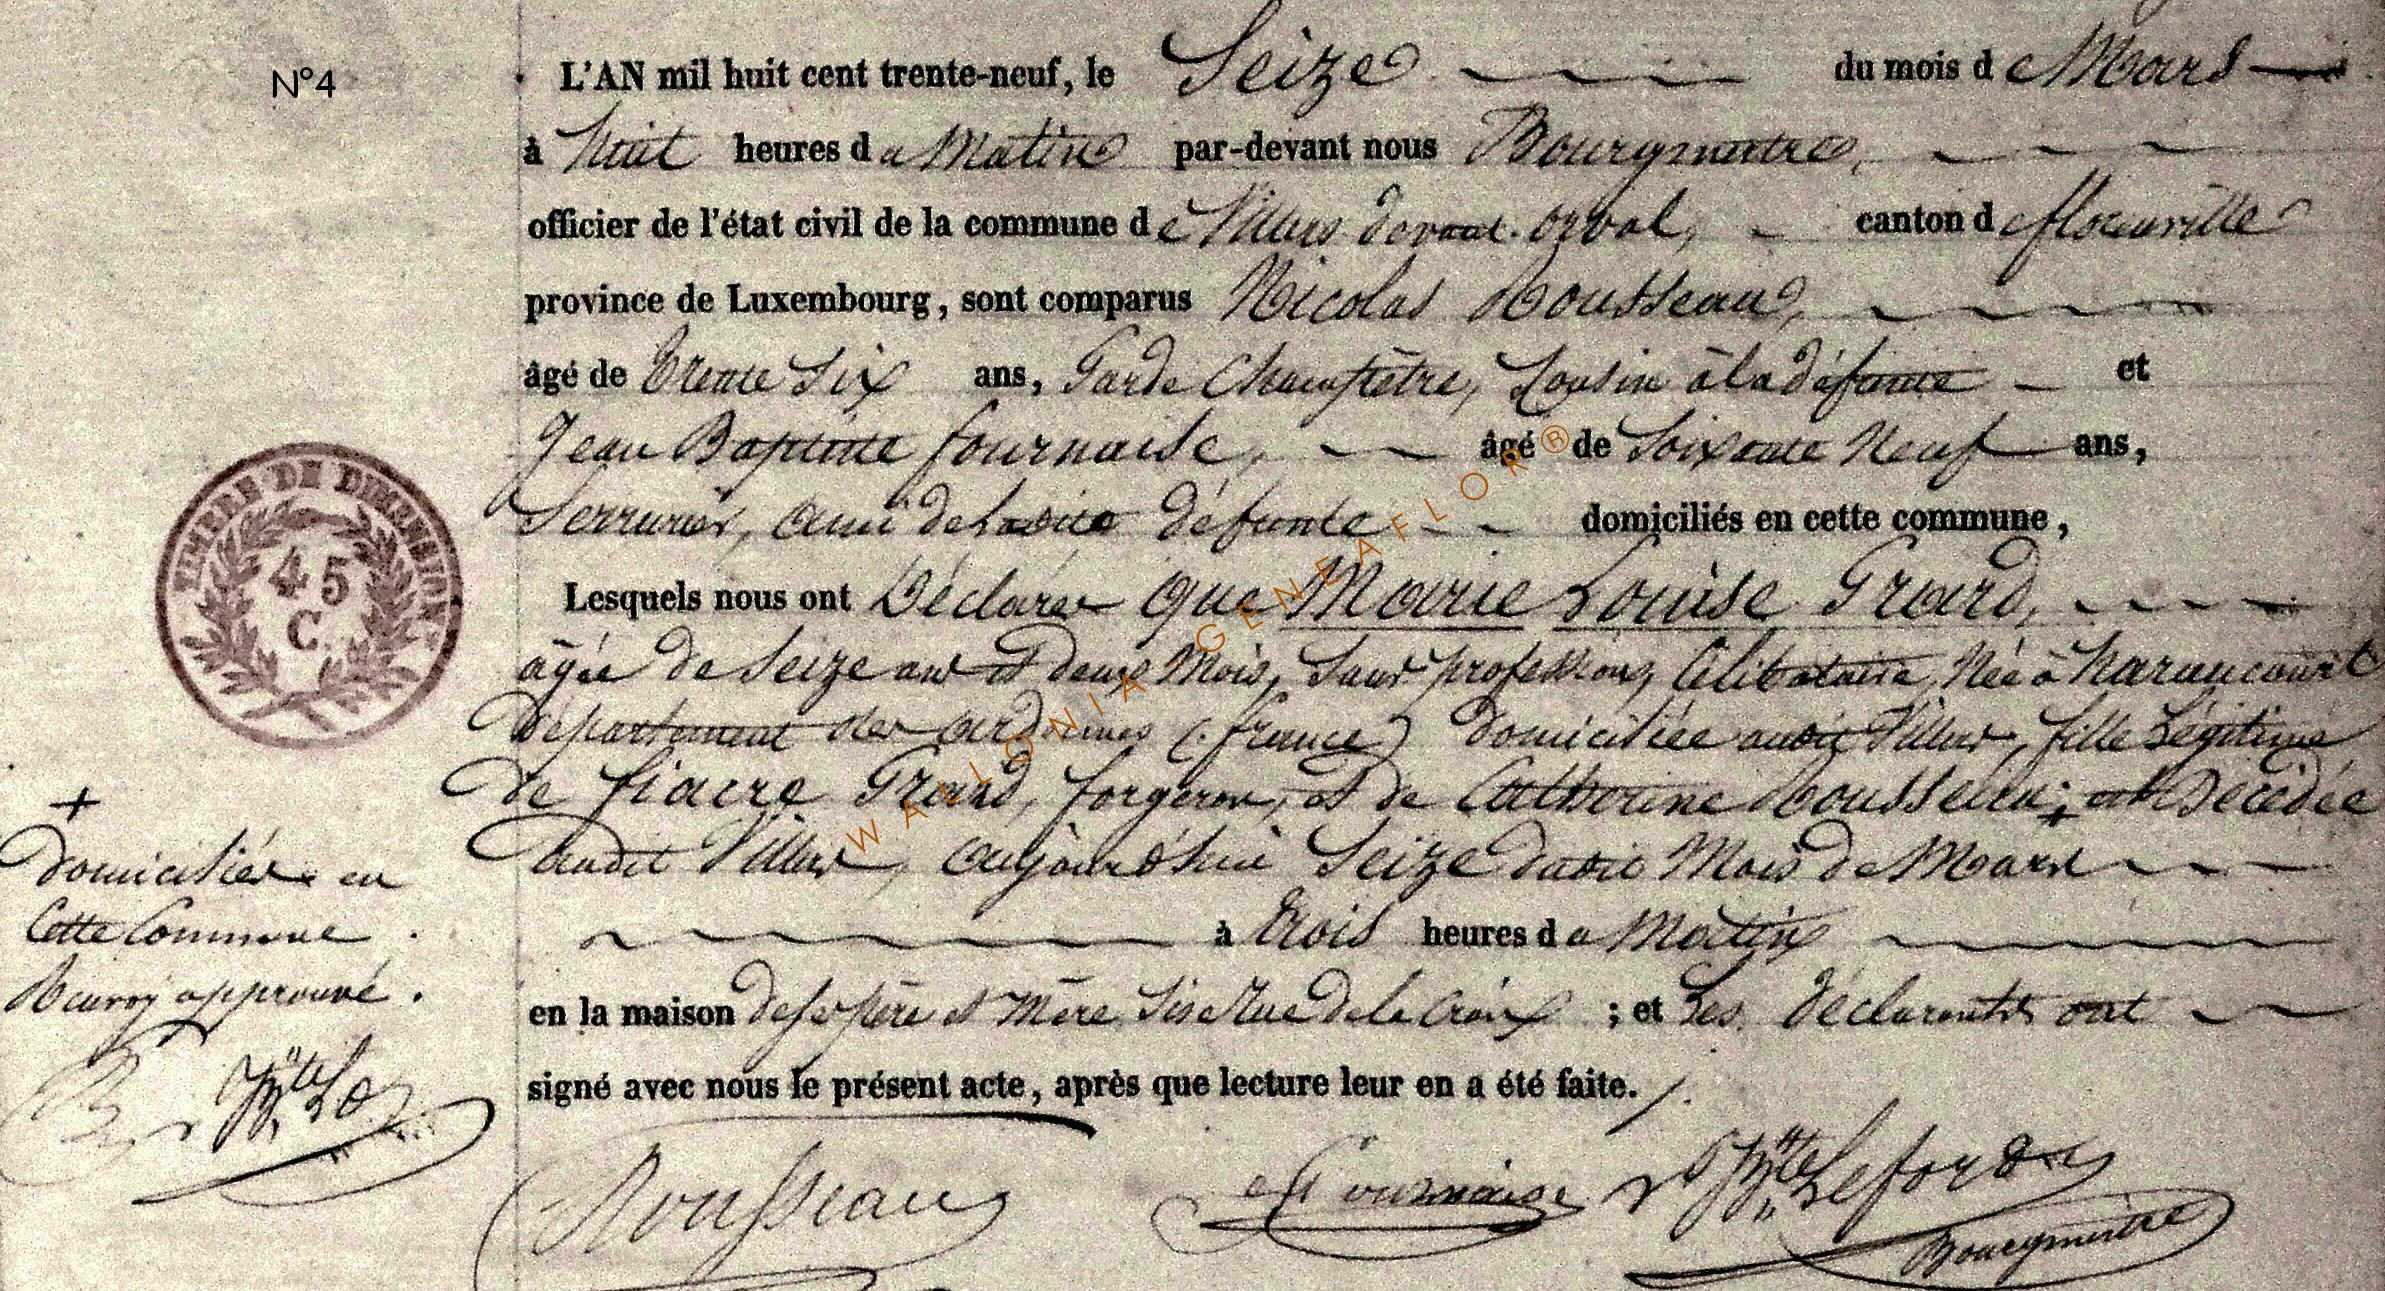 N°4
L'AN mil huit cent trente-neuf, le Seize du mois de Mars
à huit heures du Matin par-devant nous Bourgmestre,
officier de l'état civil de la commune de Villers devant orval, canton de florenville
province de Luxembourg, sont comparus Nicolas Rousseau,
âgé de trente Six ans, Garde Champêtre, Cousin à la défunte et
Jean Baptiste fournaise, âgé de Soixante Neuf ans,
Serrurier, ami de Ladite défunte domiciliés en cette commune,
Lesquels nous ont Déclaré que Marie Louise Grard,
agée de Seize ans et deux Mois, Sans profession, Célibataire, Née à haraucourt
département des ardennes (france) domiciliée audit Villers, fille Légitime
de fiacre Grard, forgeron, et de Catherine Rousseau; + est Décédée
audit Villers, aujourd'hui Seize dudit Mois de Mars
à trois heures du Matin
en la maison de Ses père et Mère Sise Rue de la Croix ; et Les déclarants ont
signé avec nous le présent acte, après que lecture leur en a été faite.
Rousseau
Fournaise
J Bte Lefort
Bourgmestre
+
domiciliés en
Cette Commune
Renvoi approuvé.
TIMBRE DE DIMENSION
45
C.
WALLONIA GENEAFLOR®